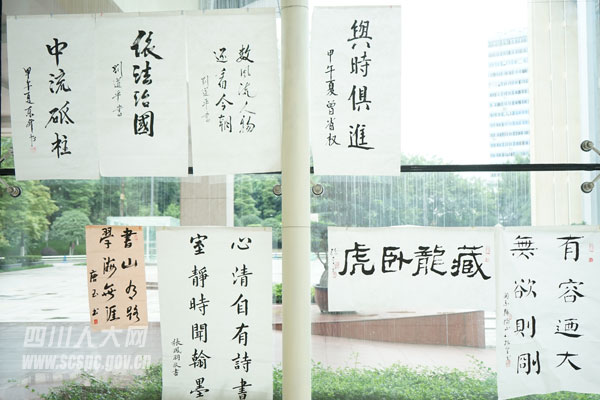 中流砥柱
依法治國
劉道平書
数风流人物
还看今朝
劉道平書
與時俱進
甲午夏曾省权
書山有路
學海無涯
心清自有詩書
室靜時聞翰墨
藏龍卧虎
有容迺大
無欲則剛
四川人大网
www.scspc.gov.cn